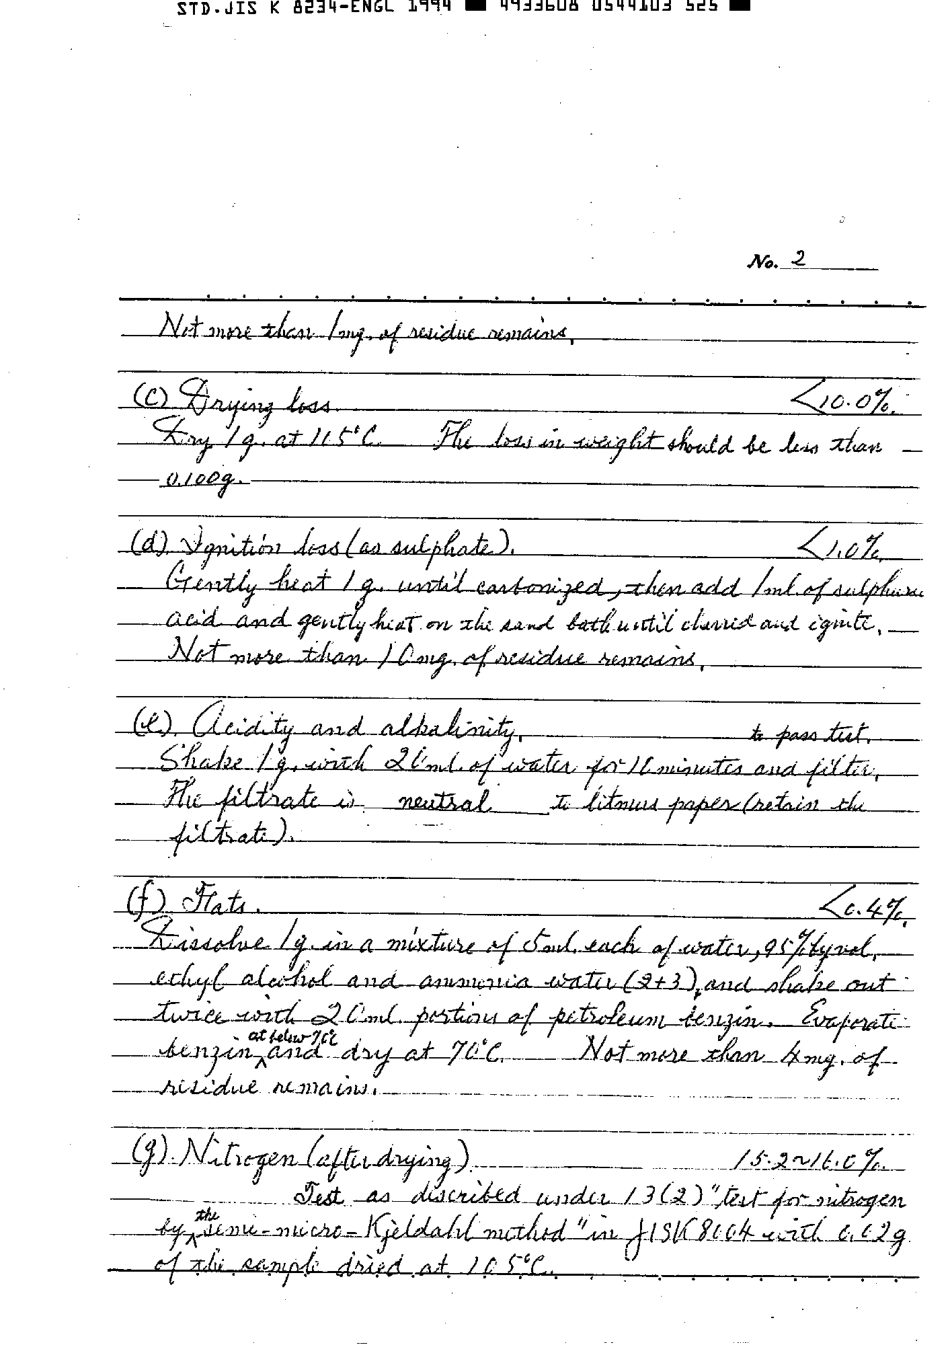 STD.JIS K 8234-ENGL 1994 ■ 4933608 0544103 525 ■
No. 2
Not more than 1mg. of residue remains.
(c) Drying loss. <10.0%.
Dry 1g. at 115°C. The loss in weight should be less than
0.100g.
(d) Ignition loss (as sulphate). <1.0%.
Gently heat 1g. until carbonized, then add 1ml. of sulphuric
acid and gently heat on the sand bath until charred and ignite.
Not more than 10mg. of residue remains.
(e). Acidity and alkalinity. to pass test.
Shake 1g. with 20ml. of water for 10 minutes and filter.
The filtrate is neutral to litmus paper (retain the
filtrate).
(f). Fats. <0.4%.
Dissolve 1g. in a mixture of 5ml. each of water, 95% by vol.
ethyl alcohol and ammonia water (2+3), and shake out
twice with 20ml. portions of petroleum benzin. Evaporate
benzin at below 70°C and dry at 70°C. Not more than 4mg. of
residue remains.
(g). Nitrogen (after drying) 15.2~16.0%.
Test as described under 13(2) "test for nitrogen
by the semi-micro-Kjeldahl method" in JIS K 8004 with 0.02g
of the sample dried at 105°C.